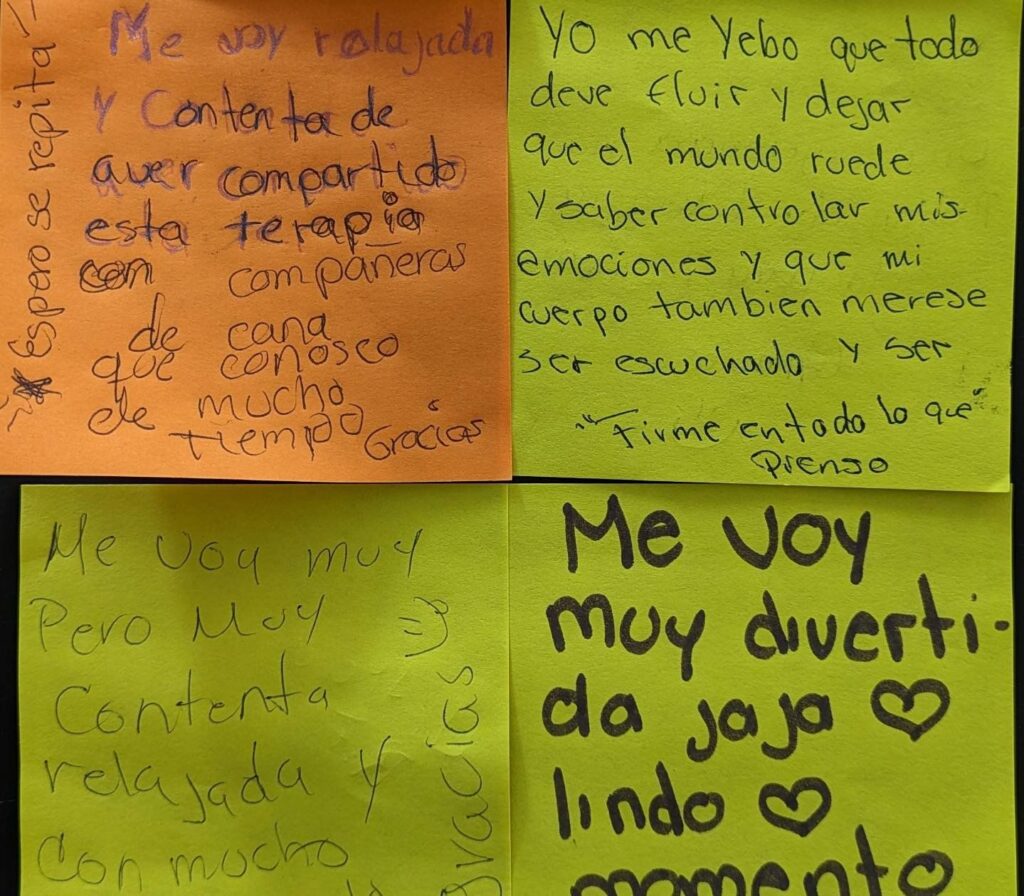 Me voy relajada
y Contenta de
aver compartido
esta terapia
con compañeras
de cana
que conosco
de mucho
tiempo Gracias
* Espero se repita
Yo me Yebo que todo
deve fluir y dejar
que el mundo ruede
y saber controlar mis
emociones y que mi
cuerpo tambien merese
ser escuchado y ser
"Firme en todo lo que"
pienso
Me voy muy
Pero Muy
Contenta
relajada y
Con mucho
gracias :)
Me voy
muy diverti-
da jaja ♡
lindo ♡
momento